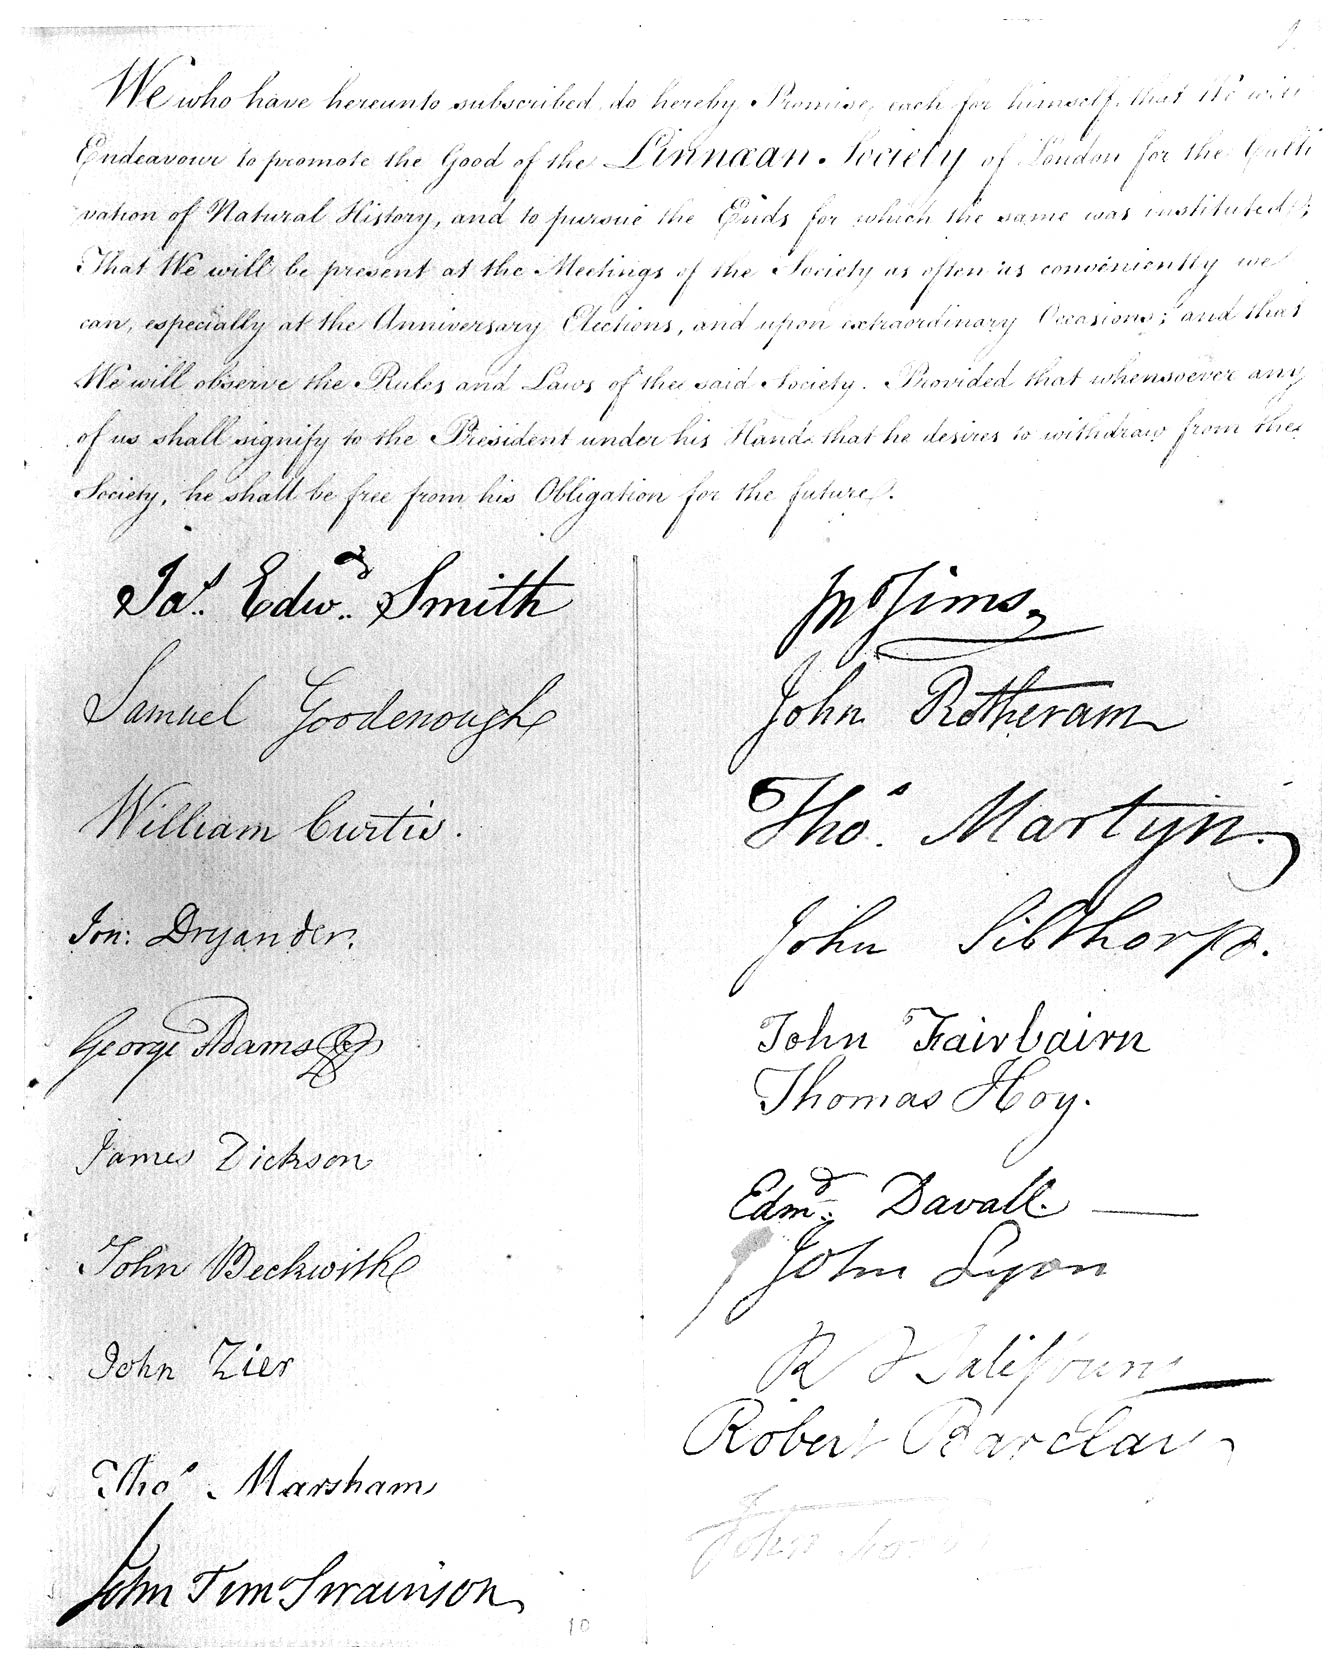 We who have hereunto subscribed do hereby Promise, each for himself, that We will
Endeavour to promote the Good of the Linnæan Society of London for the Culti
vation of Natural History, and to pursue the Ends for which the same was instituted;
That We will be present at the Meetings of the Society as often as conveniently we
can, especially at the Anniversary Elections, and upon extraordinary Occasions; and that
We will observe the Rules and Laws of the said Society. Provided that whensoever any
of us shall signify to the President under his Hand that he desires to withdraw from the
Society, he shall be free from his Obligation for the future.
Jas. Edwd. Smith
Samuel Goodenough
William Curtis.
Jon: Dryander.
George Adams
James Dickson
John Beckwith
John Zier
Thos. Marsham
John Tim Swainson
10
Jn Tims
John Rotheram
Thos. Martyn.
John Sibthorp.
John Fairbairn
Thomas Hoy.
Edmd. Davall.
John Lyon
R A Salisbury
Robert Barclay
John